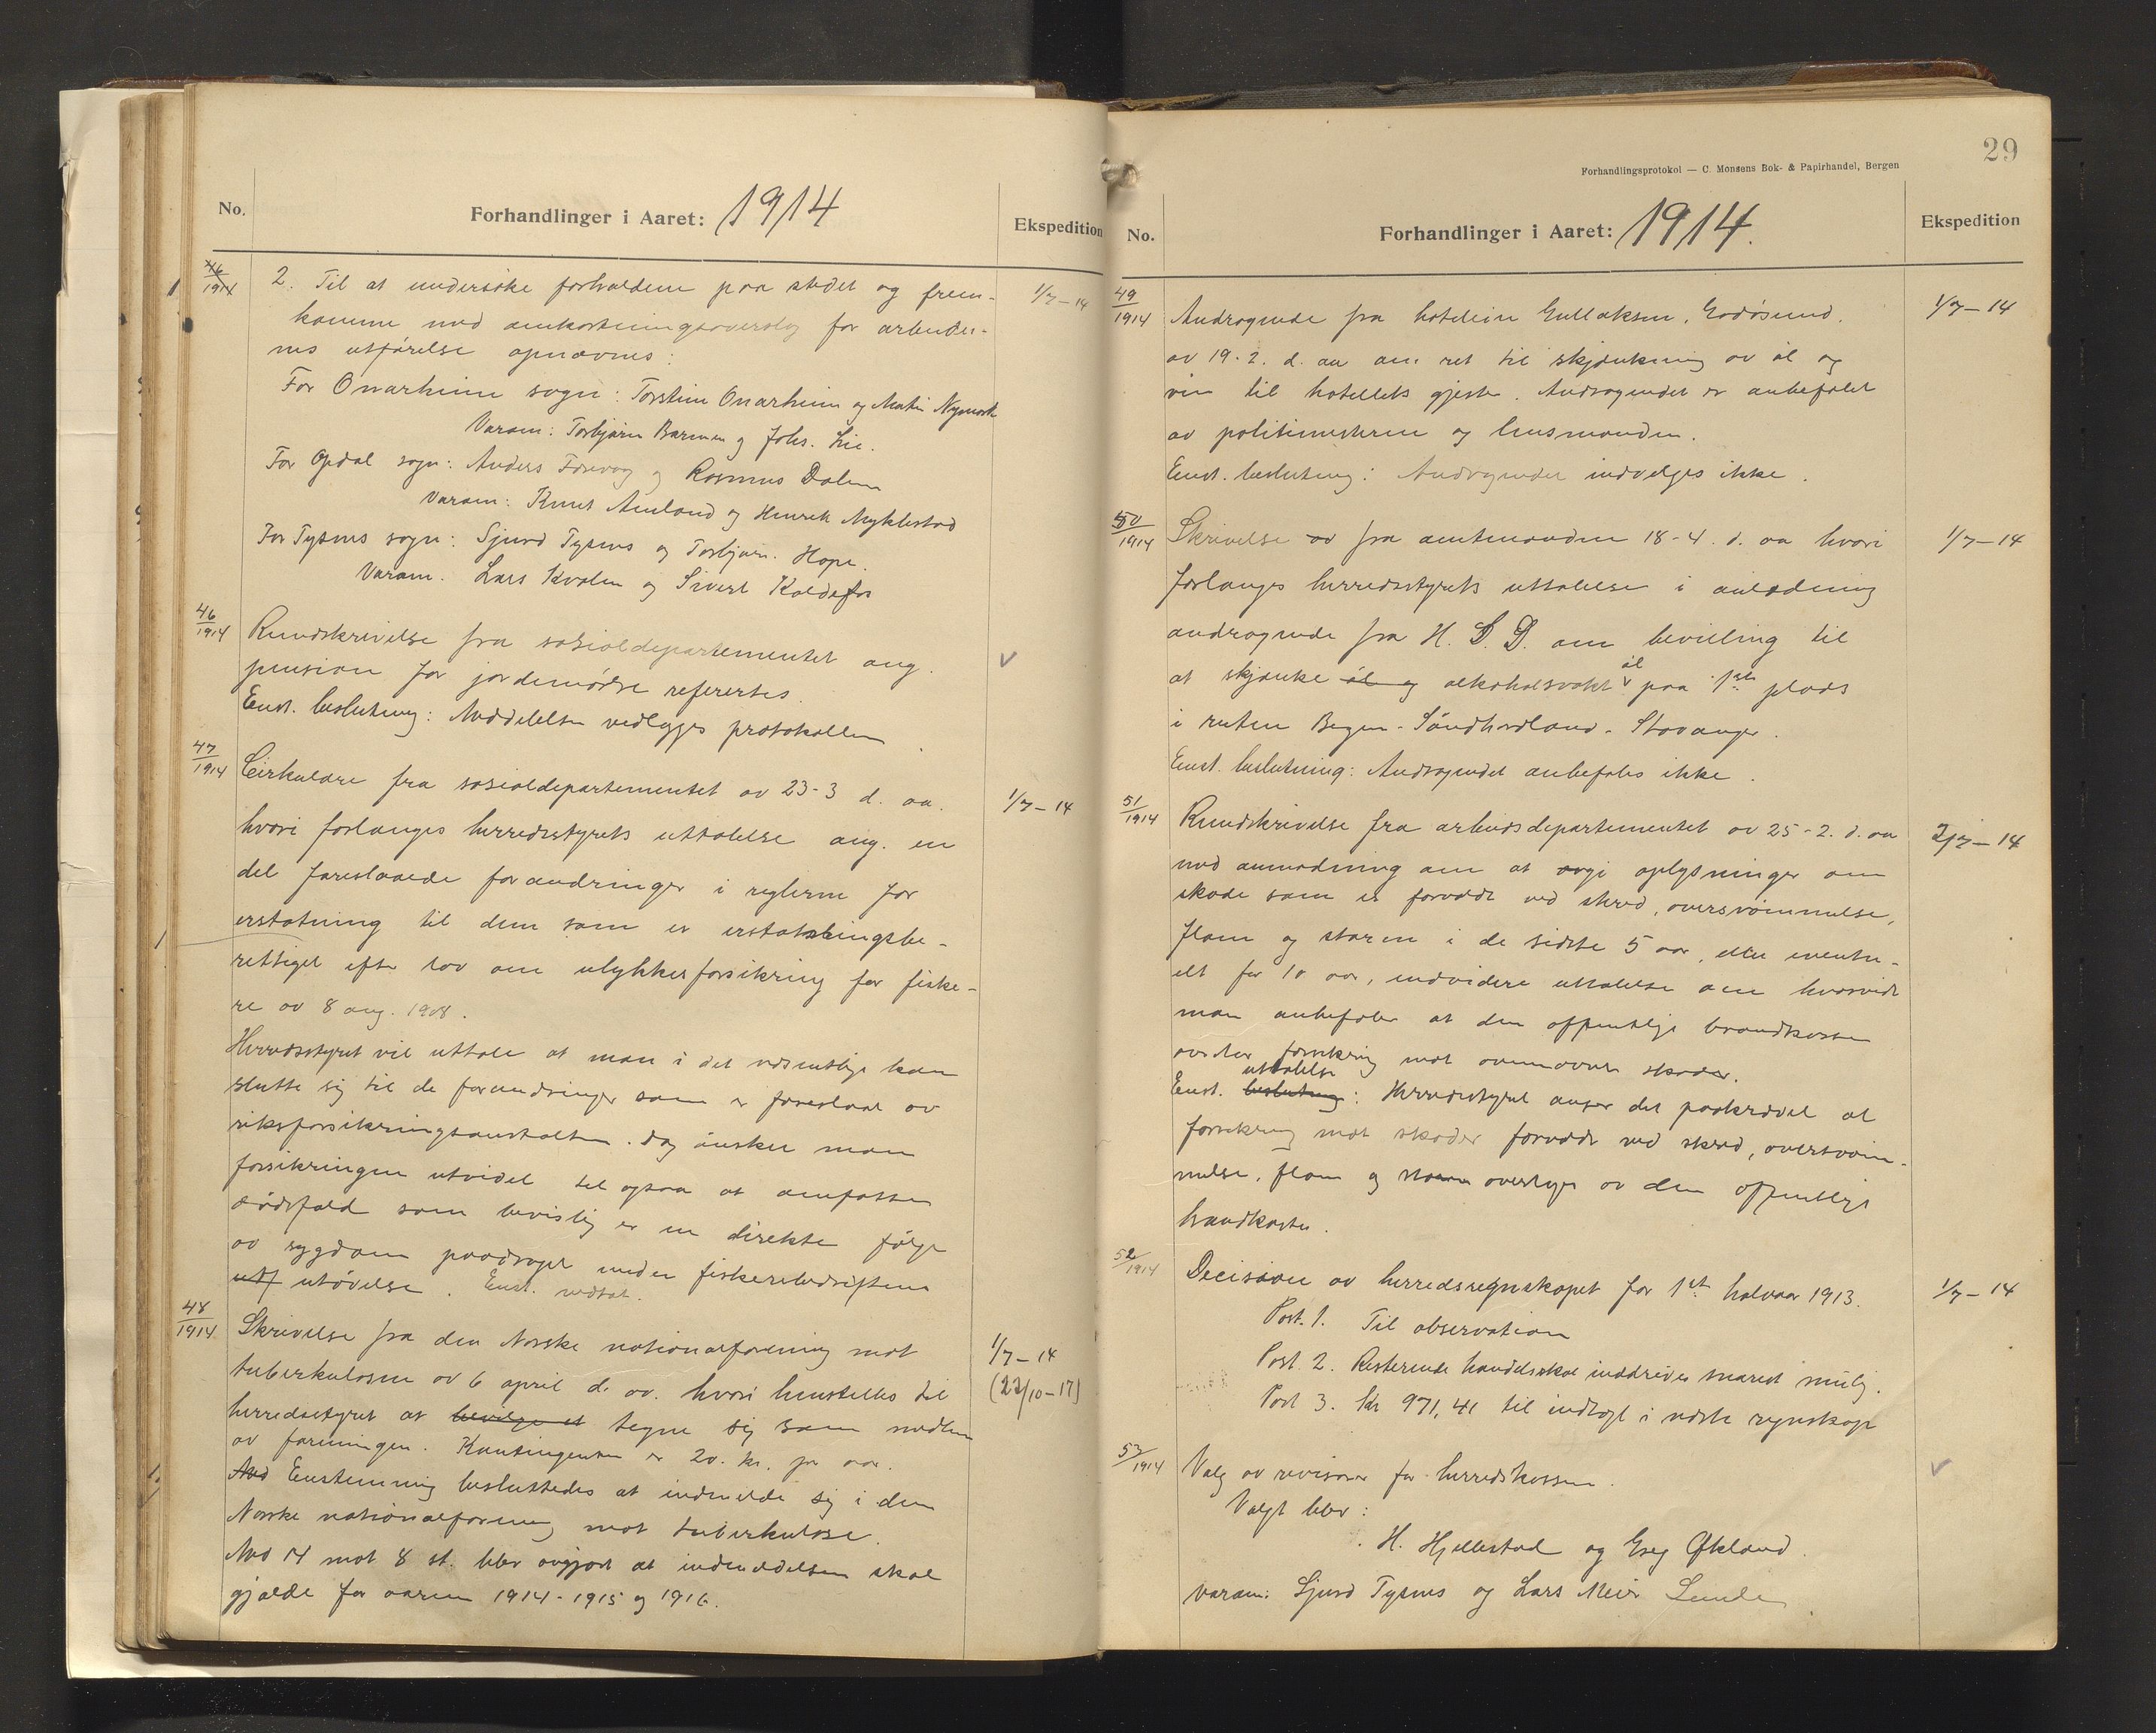 No.
Forhandlinger i Aaret: 1914
Ekspedition
46/1914
2. Til at undersøke forholdene paa stedet og frem-
1/7-14
komme med omkostningsoverslag for arbeider-
nes utførelse opnævnes:
For Onarheim sogn: Torstein Onarheim og Matin Nymark
Varam: Torbjørn Barmen og Johs. Lie.
For Opdal sogn: Anders og Rasmus Dalen
Varam: Knut Amland og Henrik Myklestad
For Tysnes sogn: Sjurd Tysnes og Torbjørn Hope.
Varam. Lars Kvalen og Sivert Kaldefos
46/1914
Rundskrivelse fra sosialdepartementet ang.
pension for jordemødre referertes.
Enst. beslutning: Meddelelsen vedlægges protokollen.
47/1914
Cirkulære fra sosialdepartementet av 23-3 d. aa.
1/7-14
hvori forlanges herredsstyrets uttalelse ang. en
del foreslaaede forandringer i reglerne for
erstatning til dem som er erstatningsbe-
rettiget efter lov om ulykkesforsikring for fiske-
re av 8 aug. 1908.
Herredsstyret vil uttale at man i det væsentlige kan
slutte sig til de forandringer som er foreslaat av
riksforsikringsanstalten. Dog ønsker man
forsikringen utvidet til ogsaa at omfatte
dødsfald som bevislig er en direkte følge
av sygdom paadraget under fiskeribedriftens
utf utøvelse. Enst. vedtat.
48/1914
Skrivelse fra den Norske nationalforening mot
1/7-14
tuberkulosen av 6 april d. aa. hvori henstilles til
(22/10-17)
herredsstyret at bevilge et tegne sig som medlem
av foreningen. Kontingenten er 20. kr. pr aar.
Med Enstemmig besluttedes at indmelde sig i den
Norske nationalforening mot tuberkulose.
Med 14 mot 8 st. blev avgjort at indmeldelsen skal
gjælde for aarene 1914-1915 og 1916.
29
Forhandlingsprotokol — C. Monsens Bok- & Papirhandel, Bergen
No.
Forhandlinger i Aaret: 1914.
Ekspedition
49/1914
Andragende fra hoteleier Gullaksen, Godøsund,
1/7-14
av 19-2. d. aa om ret til skjænkning av øl og
vin til hotellets gjester. Andragendet er anbefalet
av politimesteren og lensmanden.
Enst. beslutning: Andragendet indvilges ikke.
50/1914
Skrivelse av fra amtmanden 18-4. d. aa hvori
1/7-14
forlanges herredsstyrets uttalelse i anledning
andragende fra H. S. D. om bevilling til
at skjænke øl og alkoholsvakt øl paa 1ste plads
i ruten Bergen-Søndhordland-Stavanger.
Enst. beslutning: Andragendet anbefales ikke.
51/1914
Rundskrivelse fra arbeidsdepartementet av 25-2. d. aa
2/7-14
med anmodning om at avgi oplysninger om
skade som er forvoldt ved skred, oversvømmelse,
flom og storm i de sidste 5 aar, eller eventu-
elt for 10 aar, endvidere uttalelse om hvorvidt
man anbefaler at den offentlige brandkasse
overtar forsikring mot ovennævnte skader.
Enst. beslutning uttalelse: Herredsstyret anser det paakrævet at
forsikring mot skader forvoldt ved skred, oversvøm-
melse, flom og storm overtages av den offentlige
brandkasse.
52/1914
Decision av herredsregnskapet for 1ste halvaar 1913.
1/7-14
Post. 1. Til observation
Post 2. Resterende handelsskat inddrives snarest mulig.
Post 3. Kr 971,41 til indtægt i næste regnskap
53/1914
Valg av revisorer for herredskassen.
Valgt blev:
H. Hjellestad og Greg Økland.
Varam: Sjurd Tysnes og Lars Meier Lunde